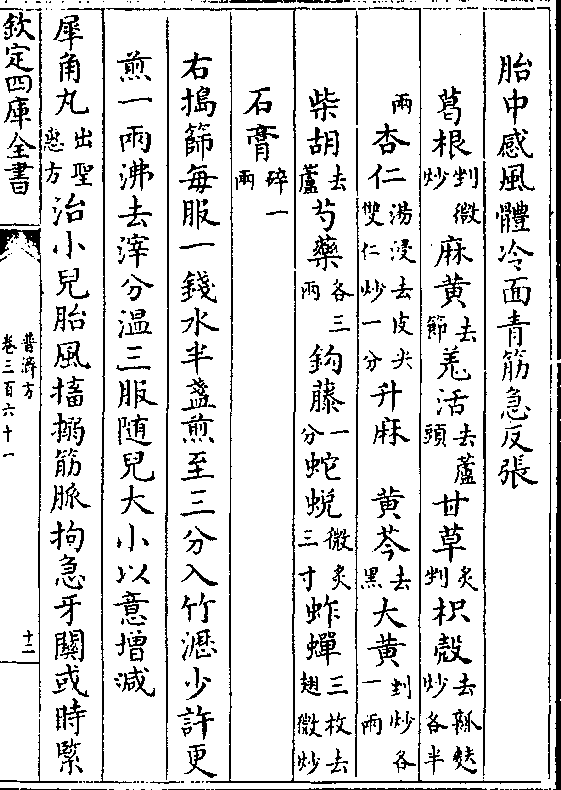 胎中感風體冷面青筋急反張
葛根剉微炒麻黄去節羗活去蘆頭甘草炙剉枳殼去瓤麩炒各半
兩杏仁湯浸去皮尖雙仁炒一分升麻 黄芩去黑大黄剉炒各一兩
柴胡去蘆芍藥各三兩鈎藤一分蛇蜕微炙三寸蚱蟬三枚去翅微炒
石膏碎一兩
右搗篩每服一錢水半盞煎至三分入竹瀝少許更
煎一兩沸去滓分温三服随兒大小以意增减
犀角丸出聖惠方治小兒胎風搐搦筋脈拘急牙關或時緊
欽定四庫全書
普濟方
卷三百六十一
十二